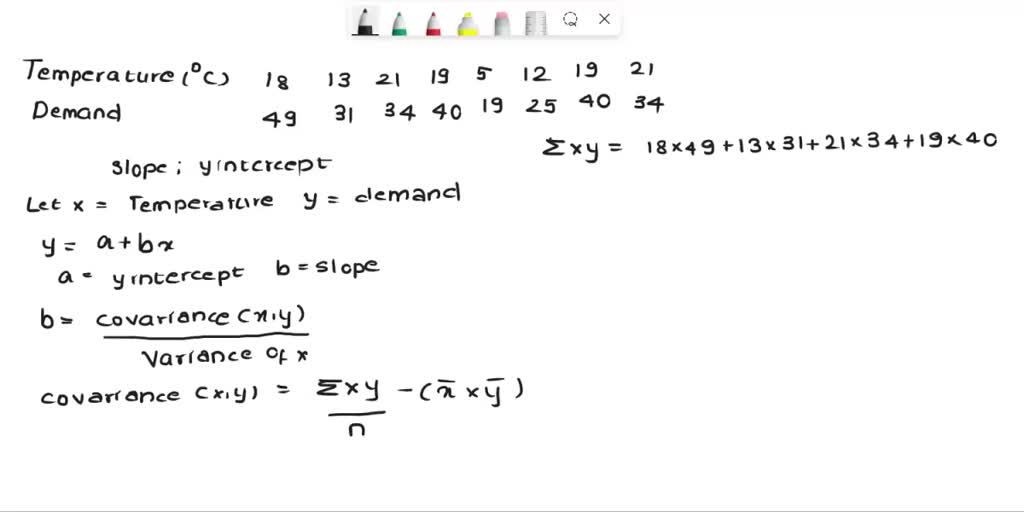 Temperature (°C) 18 13 21 19 5 12 19 21
Demand 49 31 34 40 19 25 40 34
Σxy = 18×49+13×31+21×34+19×40
slope; yintercept
Let x = Temperature y = demand
y = a+bx
a = yintercept b = slope
b = covariance (x,y)
Variance of x
covariance (x,y) = Σxy - (x̄ × ȳ)
n